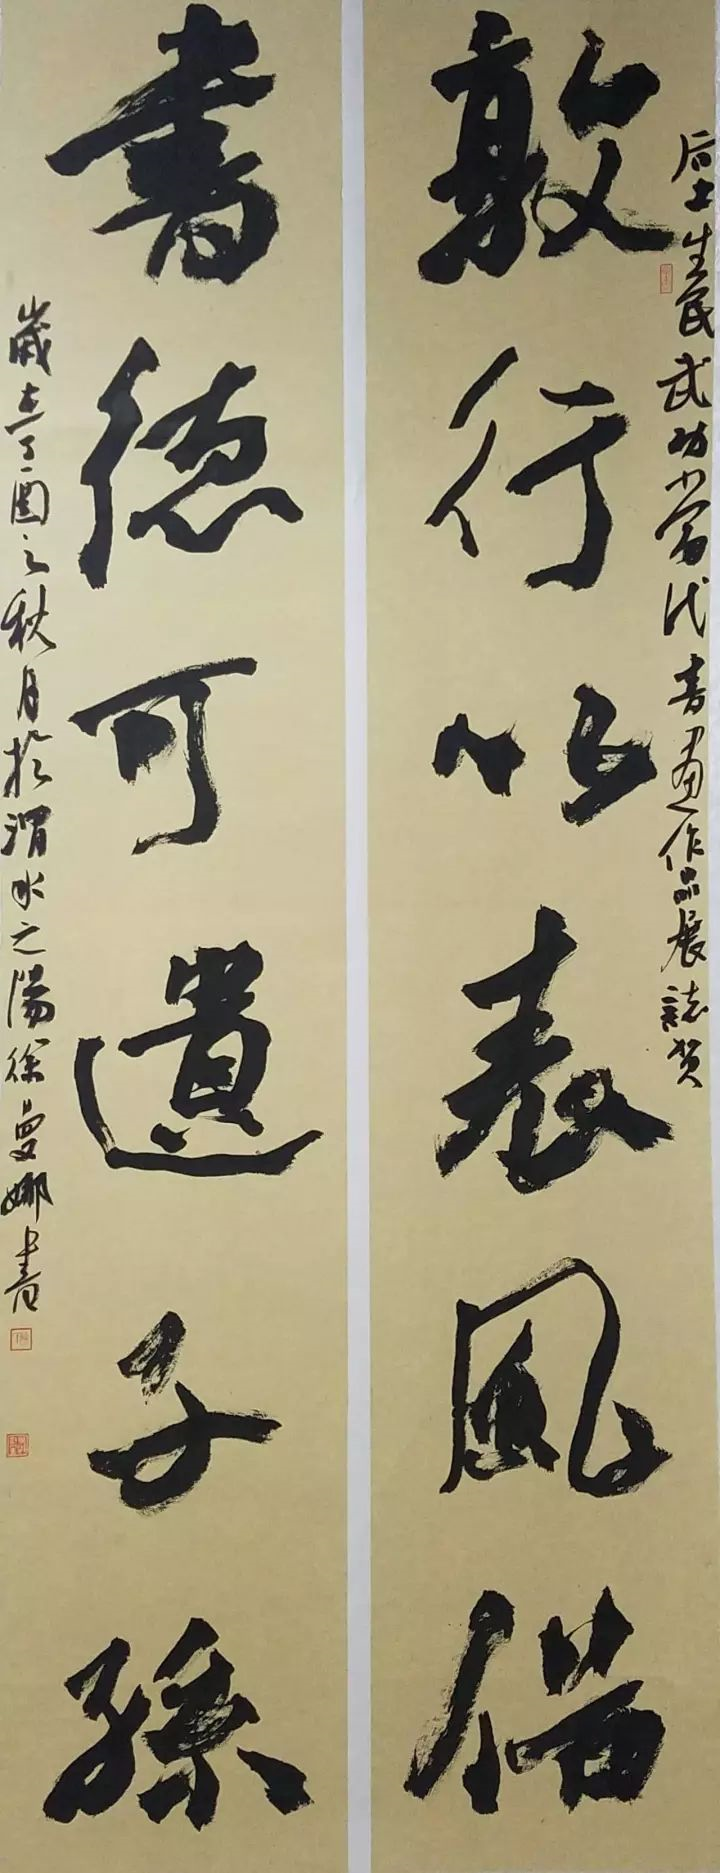 后土生民武功當代書畫作品展誌賀
敦行以表風
書德可遺子孫
歲在丁酉之秋月於渭水之陽徐曼娜書